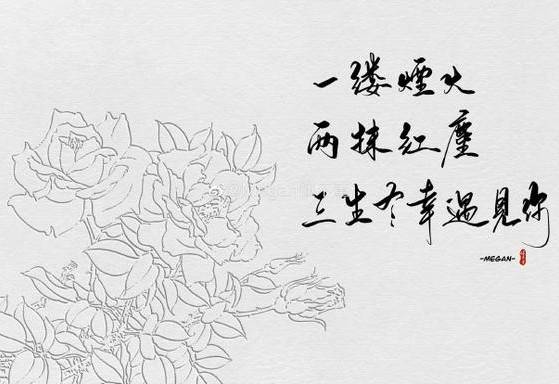 一缕煙火
两抹红塵
三生有幸遇見你
-MEGAN-